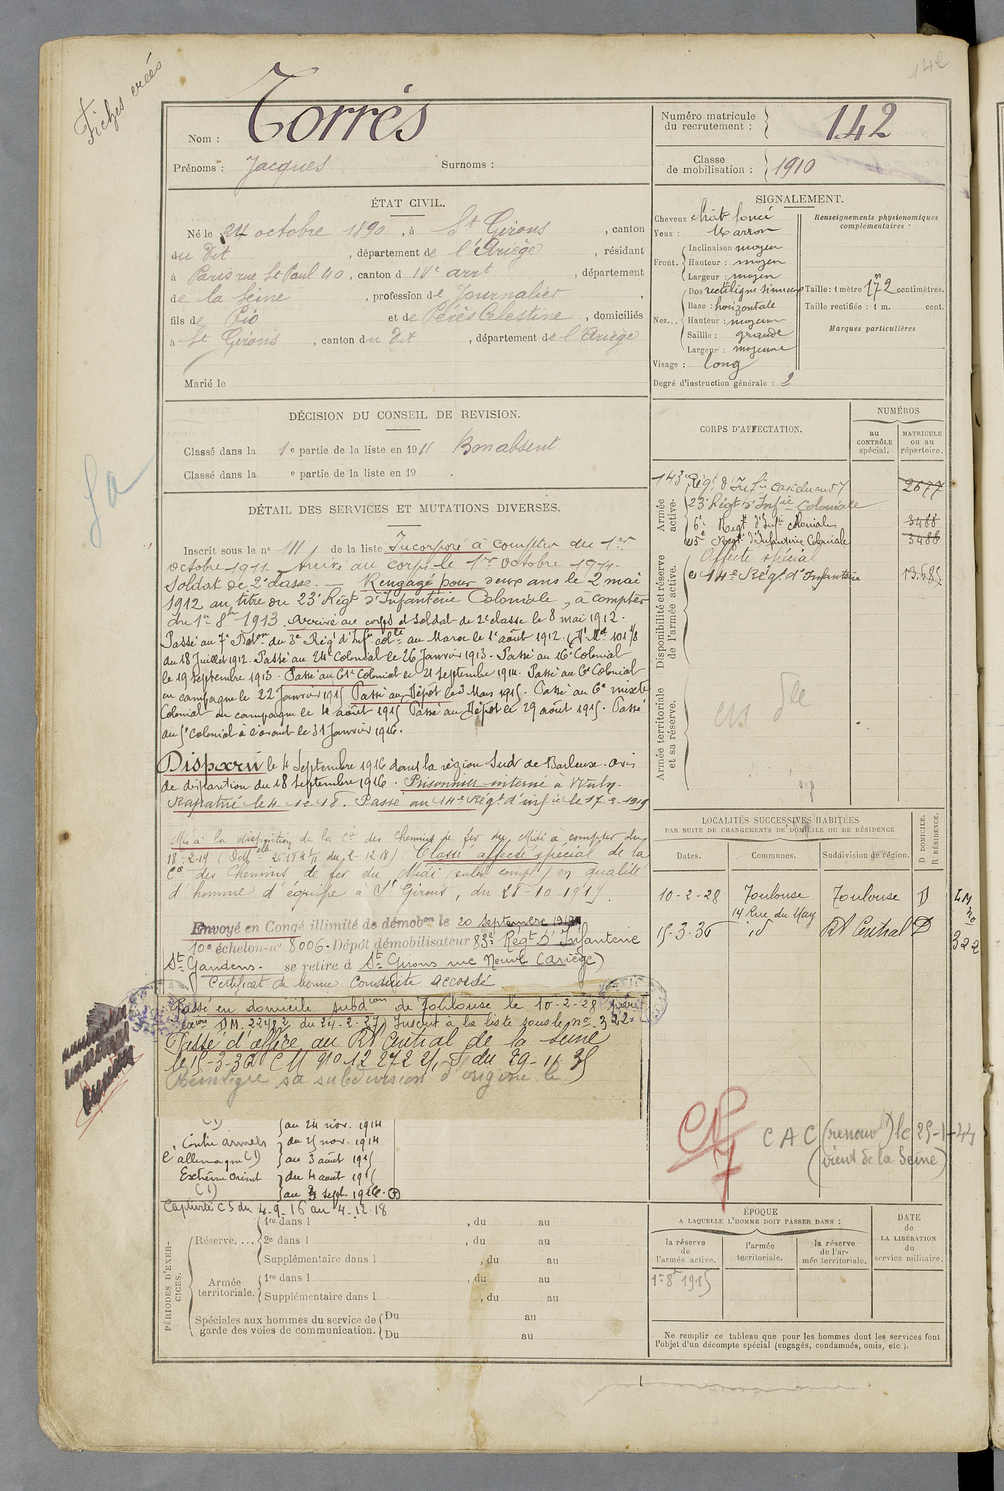 Fiches créées
142
Nom : Torrés
Prénoms : Jacques Surnoms :
Numéro matricule du recrutement : 142
Classe de mobilisation : 1910
ÉTAT CIVIL.
Né le 24 octobre 1890, à St Girons, canton
du dit, département de l'Ariège, résidant
à Paris rue St Paul 40, canton d IVe arrt, département
de la Seine, profession de Journalier,
fils de Pio et de Périés Célestine, domiciliés
à St Girons, canton du dit, département de l'Ariège
Marié le
SIGNALEMENT.
Cheveux chât foncé
Yeux : Marron
Front. Inclinaison moyen
Hauteur : moyen
Largeur : moyen
Nez... Dos rectiligne sinueux
Base : horizontale
Hauteur : moyenne
Saillie : grande
Largeur : moyenne
Visage : long
Degré d'instruction générale : 2
Renseignements physionomiques complémentaires :
Taille : 1 mètre 72 centimètres.
Taille rectifiée : 1 m. cent.
Marques particulières
DÉCISION DU CONSEIL DE REVISION.
Classé dans la 1e partie de la liste en 1911 Bon absent
Classé dans la e partie de la liste en 19 .
CORPS D'AFFECTATION.
NUMÉROS
au CONTRÔLE spécial.
MATRICULE ou au répertoire.
Armée active.
143e Rég. d'Infie 2677
23e Régt d'Infie Coloniale
6e Régt d'Infie Coloniale 3488
5e Régt d'Infanterie Coloniale 3488
Disponibilité et réserve de l'armée active.
Affecté spécial
14e Rég. d'Infanterie
Armée territoriale et sa réserve.
DÉTAIL DES SERVICES ET MUTATIONS DIVERSES.
Inscrit sous le no 111 de la liste Incorporé à compter du 1er
octobre 1911. Arrivé au corps le 1er octobre 1911.
Soldat de 2e classe. — Rengagé pour deux ans le 2 mai
1912 au titre du 23e Régt d'Infanterie Coloniale, à compter
du 1er 8bre 1913. Arrivé au corps et soldat de 2e classe le 8 mai 1912.
Passé au 7e Baton du 3e Rég. d'Infie colle au Maroc le 1er août 1912.
du 18 Juillet 1912. Passé au 24e Colonial le 26 Janvier 1913. Passé au 16e Colonial
le 19 septembre 1913. Passé au 61e Colonial le 21 septembre 1914. Passé au 6e Colonial
en campagne le 22 Janvier 1915. Passé au Dépôt le 3 Mars 1915. Passé au 6e mixte
Colonial en campagne le 4 août 1915. Passé au Dépôt le 29 août 1915. Passé
au 5e Colonial à l'avant le 31 Janvier 1916.
Disparu le 4 Septembre 1916 dans la région Sud de Barleux. avis
de disparition du 18 septembre 1916. Prisonnier interné à
Rapatrié le 4 12-18. Passé au 14e Régt d'inf ie le 17-2-1919
Mis à la disposition de la Cie des Chemins de fer du Midi à compter du
18-2-19. Classé affecté spécial de la
Cie des Chemins de fer du Midi en qualité
d'homme d'équipe à St Girons, du 28-10-1919.
Envoyé en Congé illimité de démobon le 20 Septembre 1919
10e échelon no 8006. Dépôt démobilisateur 83e Régt d'Infanterie
St Gaudens. se retire à St Girons rue Neuve (Ariège)
Certificat de bonne conduite accordé
Passé en domicile subdon de Toulouse le 10-2-28
DM. 2248 du 24-2-27) Inscrit à la liste sous le no 322
Passé d'office au Rt Central de la Seine
le 15-3-36
Réintégré sa subdivision d'origine le
au 24 nov. 1914
Contre armées du 25 nov. 1914
l'allemagne (1) au 3 août 1915
Extrême Orient du 4 août 1915
(1) au 3 sept. 1916.
Captivité CS du 4-9-16 au 4-12-18
LOCALITÉS SUCCESSIVES HABITÉES
PAR SUITE DE CHANGEMENTS DE DOMICILE OU DE RÉSIDENCE
Dates. Communes. Subdivision de région. D DOMICILE. R RÉSIDENCE.
10-2-28 Toulouse Toulouse D
14 Rue du May
15-3-36 id Rt Central D
LM
no
322
CAC (renouvt) le 25-1-44
(vient de la Seine)
PÉRIODES D'EXERCICES.
Réserve.... 1re dans l , du au
2e dans l , du au
Supplémentaire dans l , du au
Armée territoriale. 1re dans l , du au
Supplémentaire dans l , du au
Spéciales aux hommes du service de garde des voies de communication. Du au
Du au
ÉPOQUE
A LAQUELLE L'HOMME DOIT PASSER DANS :
la réserve de l'armée active.
l'armée territoriale.
la réserve de l'armée territoriale.
DATE de LA LIBÉRATION du service militaire.
1er 8bre 1915
Ne remplir ce tableau que pour les hommes dont les services font
l'objet d'un décompte spécial (engagés, condamnés, omis, etc.).